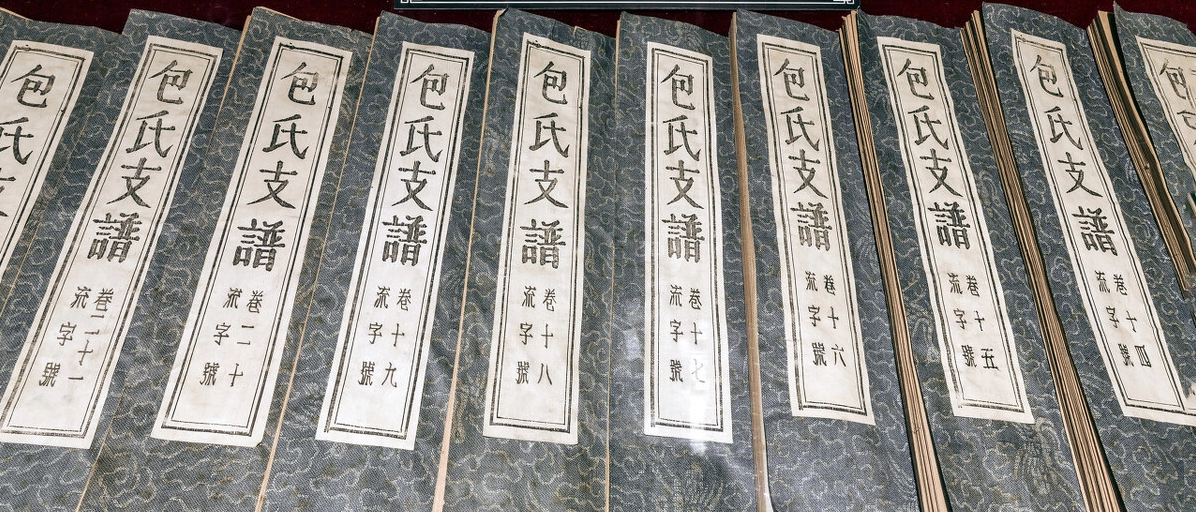 包
包氏支譜
卷十四
流字號
包氏支譜
卷十五
流字號
包氏支譜
卷十六
流字號
包氏支譜
卷十七
流字號
包氏支譜
卷十八
流字號
包氏支譜
卷十九
流字號
包氏支譜
卷二十
流字號
包氏支譜
卷二十一
流字號
包氏支